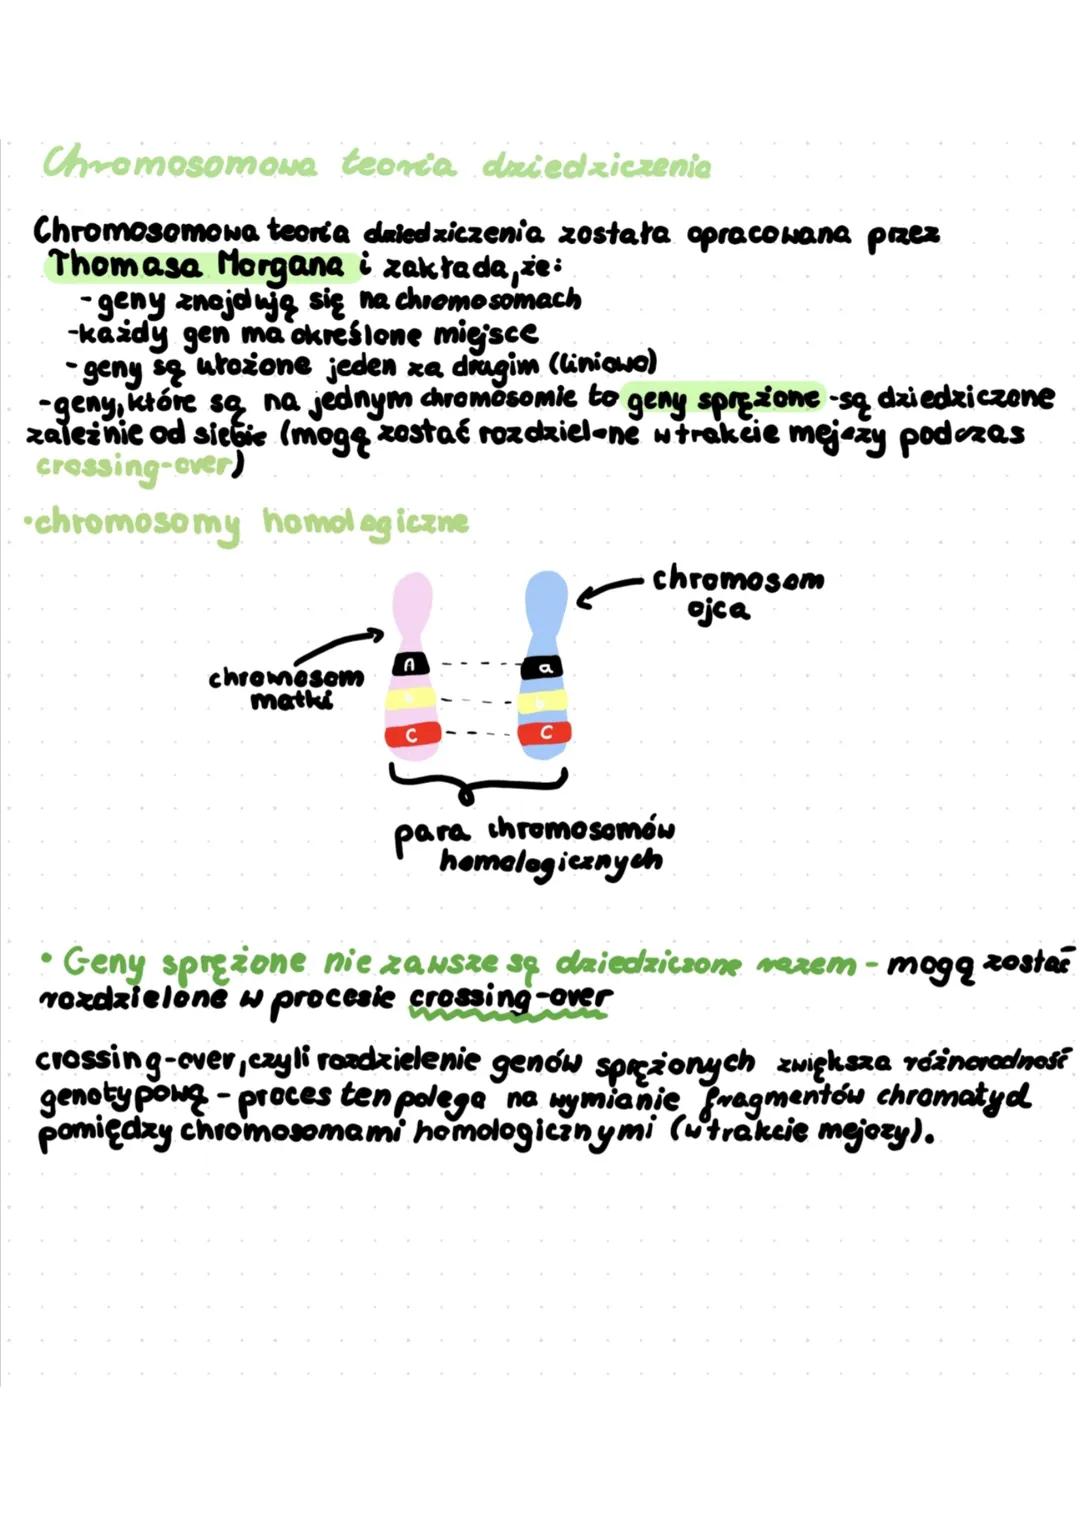 Chromosomowa teoria dziedziczenia
Chromosomowa teoria dziedziczenia została opracowana przez
Thomasa Morgana i zakłada, że:
- geny znajdują się na chromosomach
- każdy gen ma określone miejsce
- geny są ułożone jeden za drugim (liniowo)
- geny, które są na jednym chromosomie to geny sprężone - są dziedziczone
zależnie od siebie (mogą zostać rozdzielone w trakcie mejozy podczas
crossing-over)
• chromosomy homologiczne
chromosom
ojca
chromosom
matki
A a
b b
C C
para chromosomów
homologicznych
• Geny sprężone nie zawsze są dziedziczone razem - mogą zostać
rozdzielone w procesie crossing-over
crossing-over, czyli rozdzielenie genów sprężonych zwiększa różnorodność
genotypową - proces ten polega na wymianie fragmentów chromatyd
pomiędzy chromosomami homologicznymi (w trakcie mejozy).